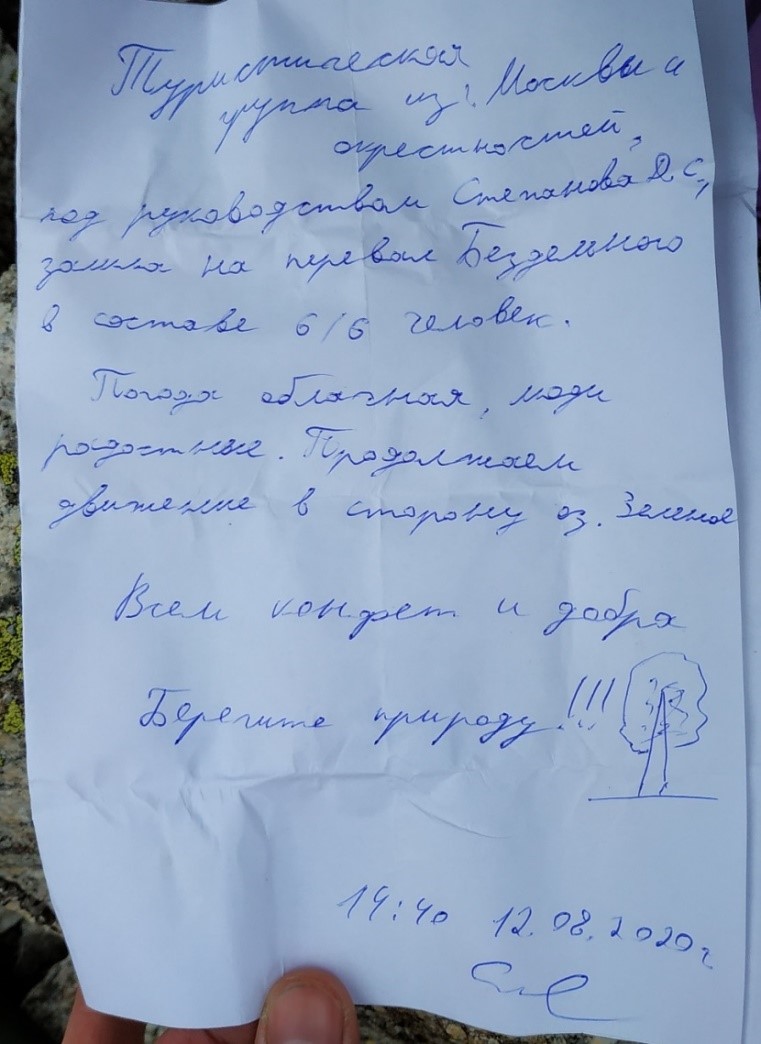 Туристическая
группа из г. Москвы и
окрестностей,
под руководством Степанова Д.С.,
зашла на перевал Бездельного
в составе 6/6 человек.
Погода облачная, люди
радостные. Продолжаем
движение в сторону оз. Зеленое
Всем конфет и добра
Берегите природу!!!
14:40 12.08.2020г